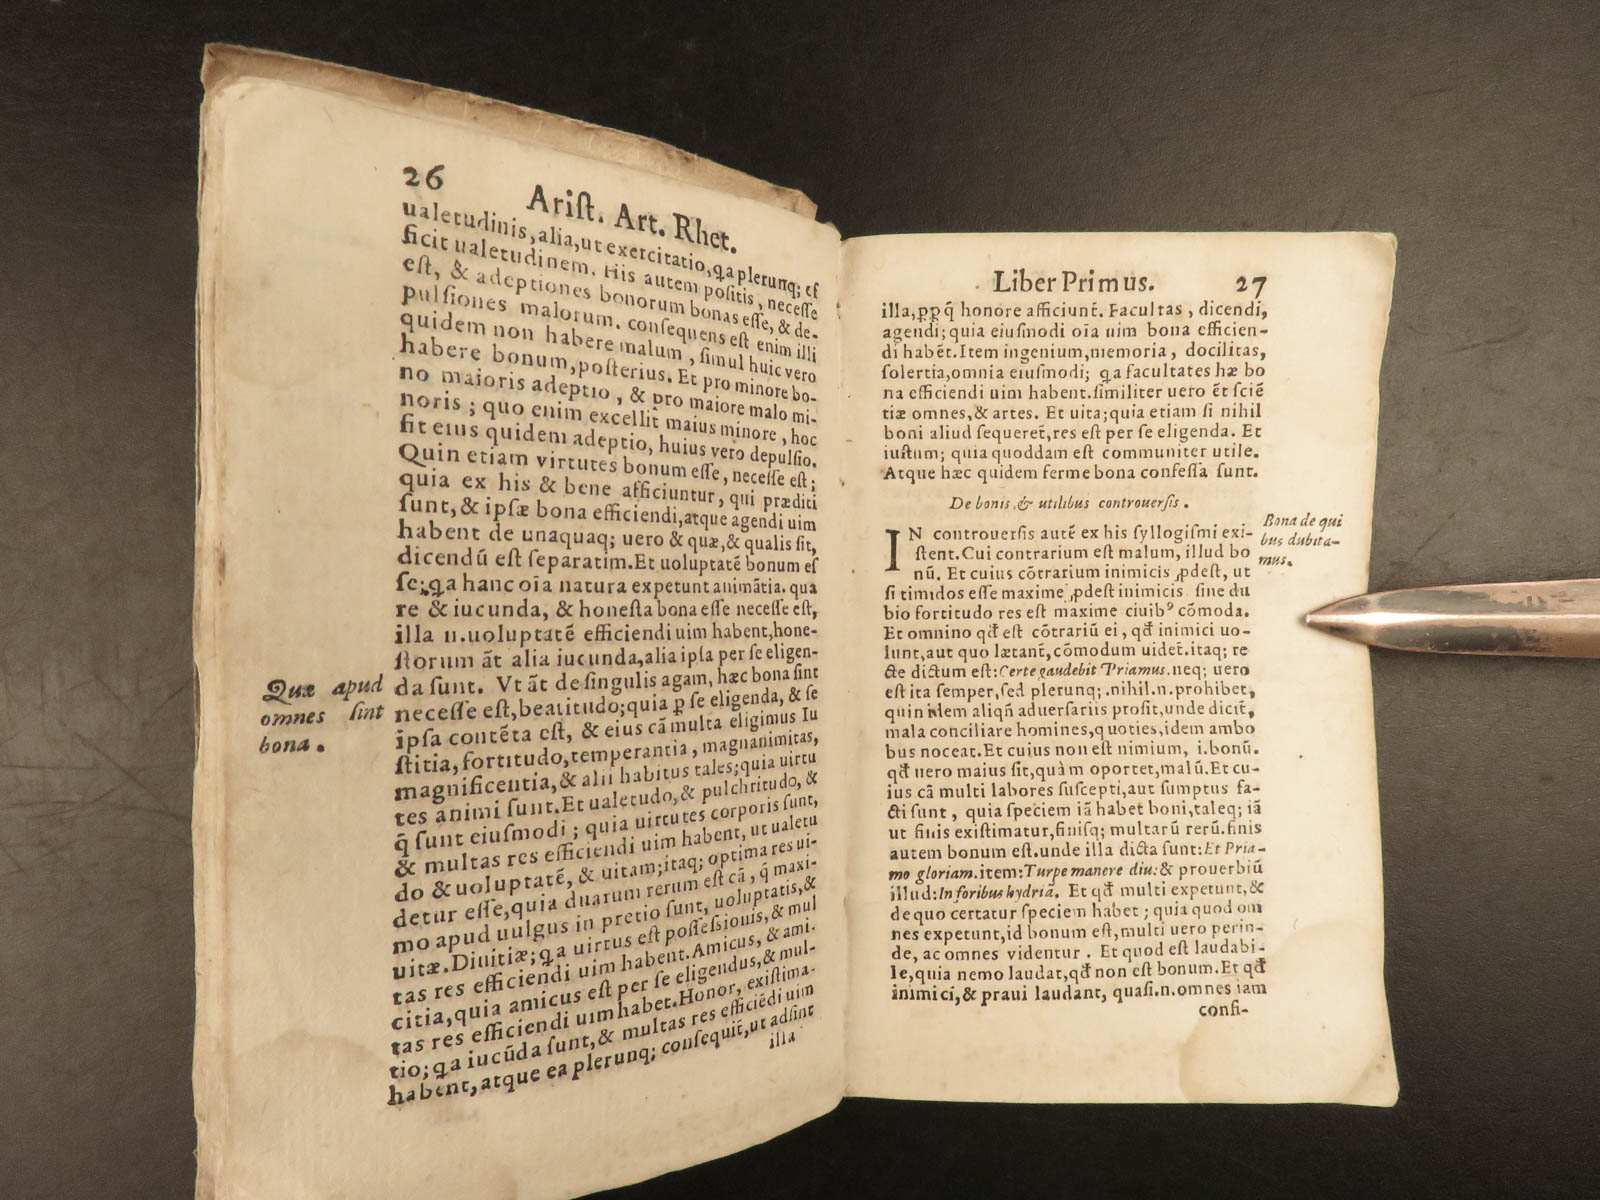 26
Ariſt. Art. Rhet.
ualetudinis, alia, ut exercitatio, q̨a plerunq; ef
ficit ualetudinem. His autem poſitis, neceſſe
eſt, & adeptiones bonorum bonas eſſe, & de-
pulſiones malorum. conſequens eſt enim illi
quidem non habere malum, ſimul huic vero
habere bonum, poſterius. Et pro minore bo-
no maioris adeptio, & ꝓ maiore malo mi-
noris; quo enim excellit maius minore, hoc
fit eius quidem adeptio, huius vero depulſio.
Quin etiam virtutes bonum eſſe, neceſſe eſt;
quia ex his & bene afficiuntur, qui præditi
ſunt, & ipſæ bona efficiendi, atque agendi uim
habent de unaquaq; uero & quæ, & qualis ſit,
dicendũ eſt ſeparatim. Et uoluptatẽ bonum eſ
ſe; q̨a hanc oĩa natura expetunt animãtia. qua
re & iucunda, & honeſta bona eſſe neceſſe eſt,
illa n. uoluptatẽ efficiendi uim habent, hone-
ſtorum ãt alia iucunda, alia ipſa per ſe eligen-
da ſunt. Vt ãt de ſingulis agam, hæc bona ſint
Quæ apud
omnes ſint
bona.
neceſſe eſt, beatitudo; quia ꝑ ſe eligenda, & ſe
ipſa contẽta eſt, & eius cã multa eligimus Iu
ſtitia, fortitudo, temperantia, magnanimitas,
magnificentia, & alii habitus tales; quia uirtu
tes animi ſunt. Et ualetudo, & pulchritudo, &
q̃ ſunt eiuſmodi; quia uirtutes corporis ſunt,
& multas res efficiendi uim habent, ut ualetu
do & uoluptatẽ, & uitam; itaq; optima res ui-
detur eſſe, quia duarum rerum eſt cã, q̃ maxi-
mo apud uulgus in pretio ſunt, uoluptatis, &
uitæ. Diuitiæ; q̨a uirtus eſt poſſeſsionis, & mul
tas res efficiendi uim habent. Amicus, & ami-
citia, quia amicus eſt per ſe eligendus, & mul-
tas res efficiendi uim habet. Honor, exiſtima-
tio; q̨a iucũda ſunt, & multas res efficiẽdi uim
habent, atque ea plerunq; conſequit̃, ut adſint
illa
Liber Primus. 27
illa, ꝓpq̃ honore afficiunt̃. Facultas, dicendi,
agendi; quia eiuſmodi oĩa uim bona efficien-
di habẽt. Item ingenium, memoria, docilitas,
ſolertia, omnia eiuſmodi; q̨a facultates hæ bo
na efficiendi uim habent. ſimiliter uero ẽt ſciẽ
tiæ omnes, & artes. Et uita; quia etiam ſi nihil
boni aliud ſequeret̃, res eſt per ſe eligenda. Et
iuſtum; quia quoddam eſt communiter utile.
Atque hæc quidem ferme bona confeſſa ſunt.
De bonis, & utilibus controuerſis.
Bona de qui
bus dubita-
mus.
IN controuerſis autẽ ex his ſyllogiſmi exi-
ſtent. Cui contrarium eſt malum, illud bo
nũ. Et cuius cõtrarium inimicis ꝓdeſt, ut
ſi timidos eſſe maxime ꝓdeſt inimicis ſine du
bio fortitudo res eſt maxime ciuibꝰ cõmoda.
Et omnino qđ eſt cõtrariũ ei, qđ inimici uo-
lunt, aut quo lætant̃, cõmodum uidet̃. itaq; re
cte dictum eſt: Certe gaudebit Priamus. neq; uero
eſt ita ſemper, ſed plerunq; . nihil. n. prohibet,
quin idem aliqñ aduerſariis proſit, unde dicit̃,
mala conciliare homines, quoties, idem ambo
bus noceat. Et cuius non eſt nimium, i. bonũ.
qđ uero maius ſit, quàm oportet, malũ. Et cu-
ius cã multi labores ſuſcepti, aut ſumptus fa-
cti ſunt, quia ſpeciem iã habet boni, taleq; iã
ut finis exiſtimatur, finiſq; multarũ rerũ. finis
autem bonum eſt. unde illa dicta ſunt: Et Pria-
mo gloriam. item: Turpe manere diu: & prouerbiũ
illud: In foribus hydriã. Et qđ multi expetunt, &
de quo certatur ſpeciem habet; quia quod om
nes expetunt, id bonum eſt, multi uero perin-
de, ac omnes videntur. Et quod eſt laudabi-
le, quia nemo laudat, qđ non eſt bonum. Et qđ
inimici, & praui laudant, quaſi. n. omnes iam
confi-